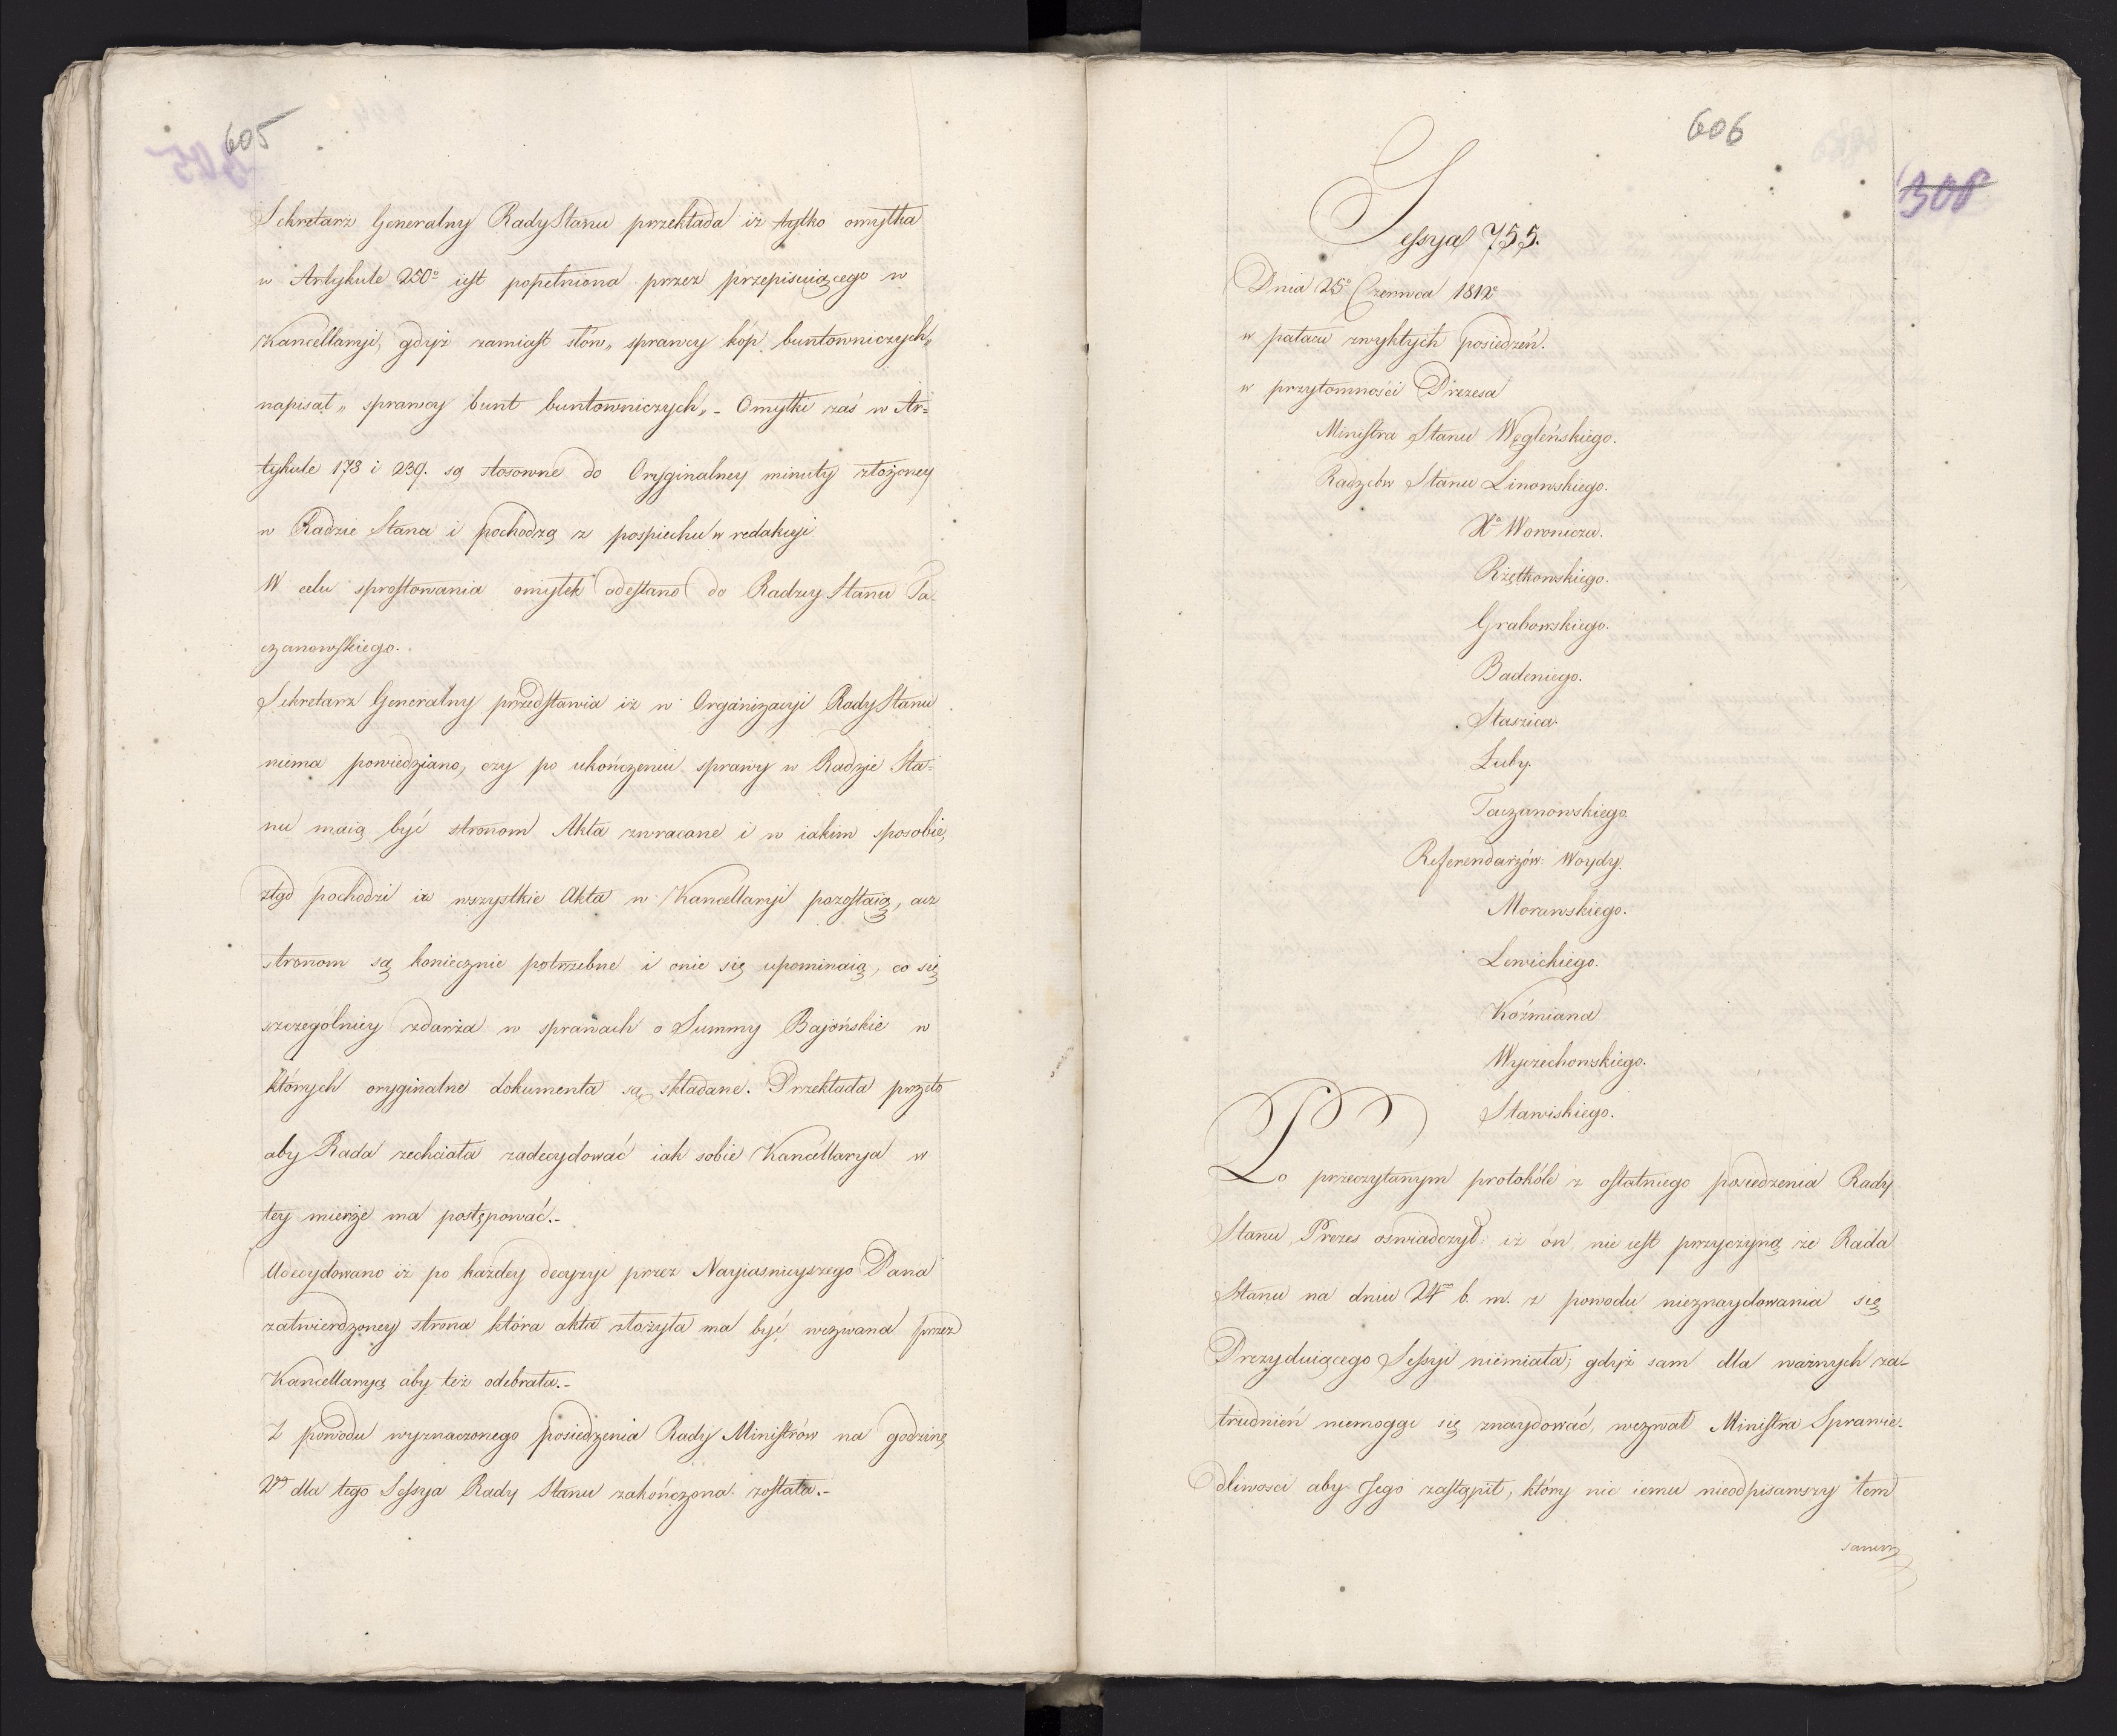 605
Sekretarz Generalny Rady Stanu przekłada iż tylko omyłka
w Artykule 250º iest popełniona przez przepisuiącego w
Kancellaryi, gdyż zamiast słów „ sprawcy kóp buntowniczych „
napisał „ sprawcy bunt buntowniczych „ - Omyłki zaś w Ar=
tykule 178 i 239. są stosowne do Oryginalney minuty złożoney
w Radzie Stanu i pochodzą z pospiechu w redakcyi
W celu sprostowania omyłek odesłano do Radzcy Stanu Ta-
czanowskiego.
Sekretarz Generalny przedstawia iż w Organizacyi Rady Stanu
niema powiedziano, czy po ukończeniu sprawy w Radzie Sta-
nu maią być stronom Akta zwracane i w iakim sposobie,
ztąd pochodzi iż wszystkie Akta w Kancellaryi pozostaią, acz
stronom są koniecznie potrzebne i onie się upominaią, co się
szczególniey zdarza w sprawach o Summy Bajońskie w
których oryginalne dokumenta są składane. Przekłada przeto
aby Rada zechciała zadecydować iak sobie Kancellarya w
tey mierze ma postępować.-
Udecydowano iż po każdey decyzyi przez Nayiasnieyszego Pana
zatwierdzoney strona która akta złożyła ma być wezwana przez
Kancellaryą aby też odebrała.-
Z powodu wyznaczonego posiedzenia Rady Ministrów na godzinę
dla tego Sessya Rady Stanu zakończona została.-
606
308
Sessya 755.
Dnia 25º Czerwca 1812º
w pałacu zwykłych posiedzeń.
w przytomności Prezesa
Ministra Stanu Węgleńskiego.
Radzców Stanu Linowskiego.
Xª Woronicza.
Rzętkowskiego.
Grabowskiego.
Badeniego.
Staszica.
Łuby.
Taczanowskiego.
Referendarzów: Woydy.
Morawskiego.
Lewickiego.
Koźmiana
Wyczechowskiego.
Stawiskiego.
Po przeczytanym protokóle z ostatniego posiedzenia Rady
Stanu, Prezes oświadczył: iż ón nie iest przyczyną że Rada
Stanu na dniu 24m b. m. z powodu nieznaydowania się
Prezyduiącego Sessyi niemiała; gdyż sam dla ważnych za-
trudnień niemogąc się znaydować, wezwał Ministra Sprawie-
dliwosci aby Jego zastąpił, który nic iemu nieodpisawszy tem
samem